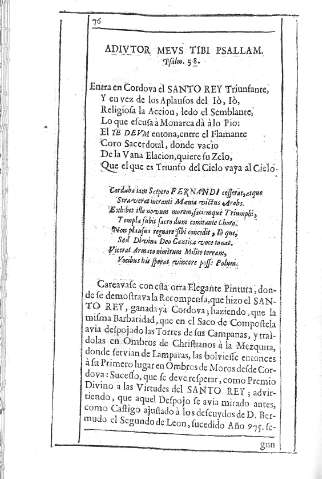 76
ADIVTOR MEVS TIBI PSALLAM.
Psalm. 58.
Entra en Cordova el SANTO REY Triunfante,
Y en vez de los Aplausos del Iò, Iò,
Religiosa la Accion, ledo el Semblante,
Lo que escusa à Monarca dà à lo Pio:
El TE DEVM entona, entre el Flamante
Coro Sacerdotal, donde vacio
De la Vana Elacion, quiere su Zelo,
Que el que es Triunfo del Cielo vaya al Cielo.
Corduba iam Sceptro FERNANDI cesserat, atque
Straverat intranti Mania victus Arabs.
Exhibet ille novum morem, sacrumque Triumphi,
Templa subit sacro dum comitante Choro.
Non plausus regnare sibi concedit, Iò que,
Sed Divina Deo Cantica voce tonat.
Vicerat Armato nimirum Milite terram,
Vocibus his sperat vincere posse Polum.
Careavase con esta otra Elegante Pintura, don-
de se demostrava la Recompensa, que hizo el SAN-
TO REY, ganada yà Cordova; haziendo, que la
misma Barbaridad, que en el Saco de Compostela
avia despojado las Torres de sus Campanas, y traì-
dolas en Ombros de Christianos à la Mezquita,
donde servian de Lamparas, las bolviesse entonces
à su Primero lugar en Ombros de Moros desde Cor-
dova: Sucesso, que se deve respetar, como Premio
Divino a las Virtudes del SANTO REY; advir-
tiendo, que aquel Despojo se avia mirado antes,
como Castigo ajustado à los descuydos de D. Ber-
mudo el Segundo de Leon, sucedido Año 975. se-
gun